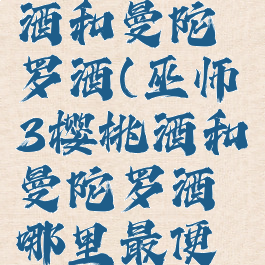 酒和曼陀
罗酒(巫师
3樱桃酒和
曼陀罗酒
哪里最便